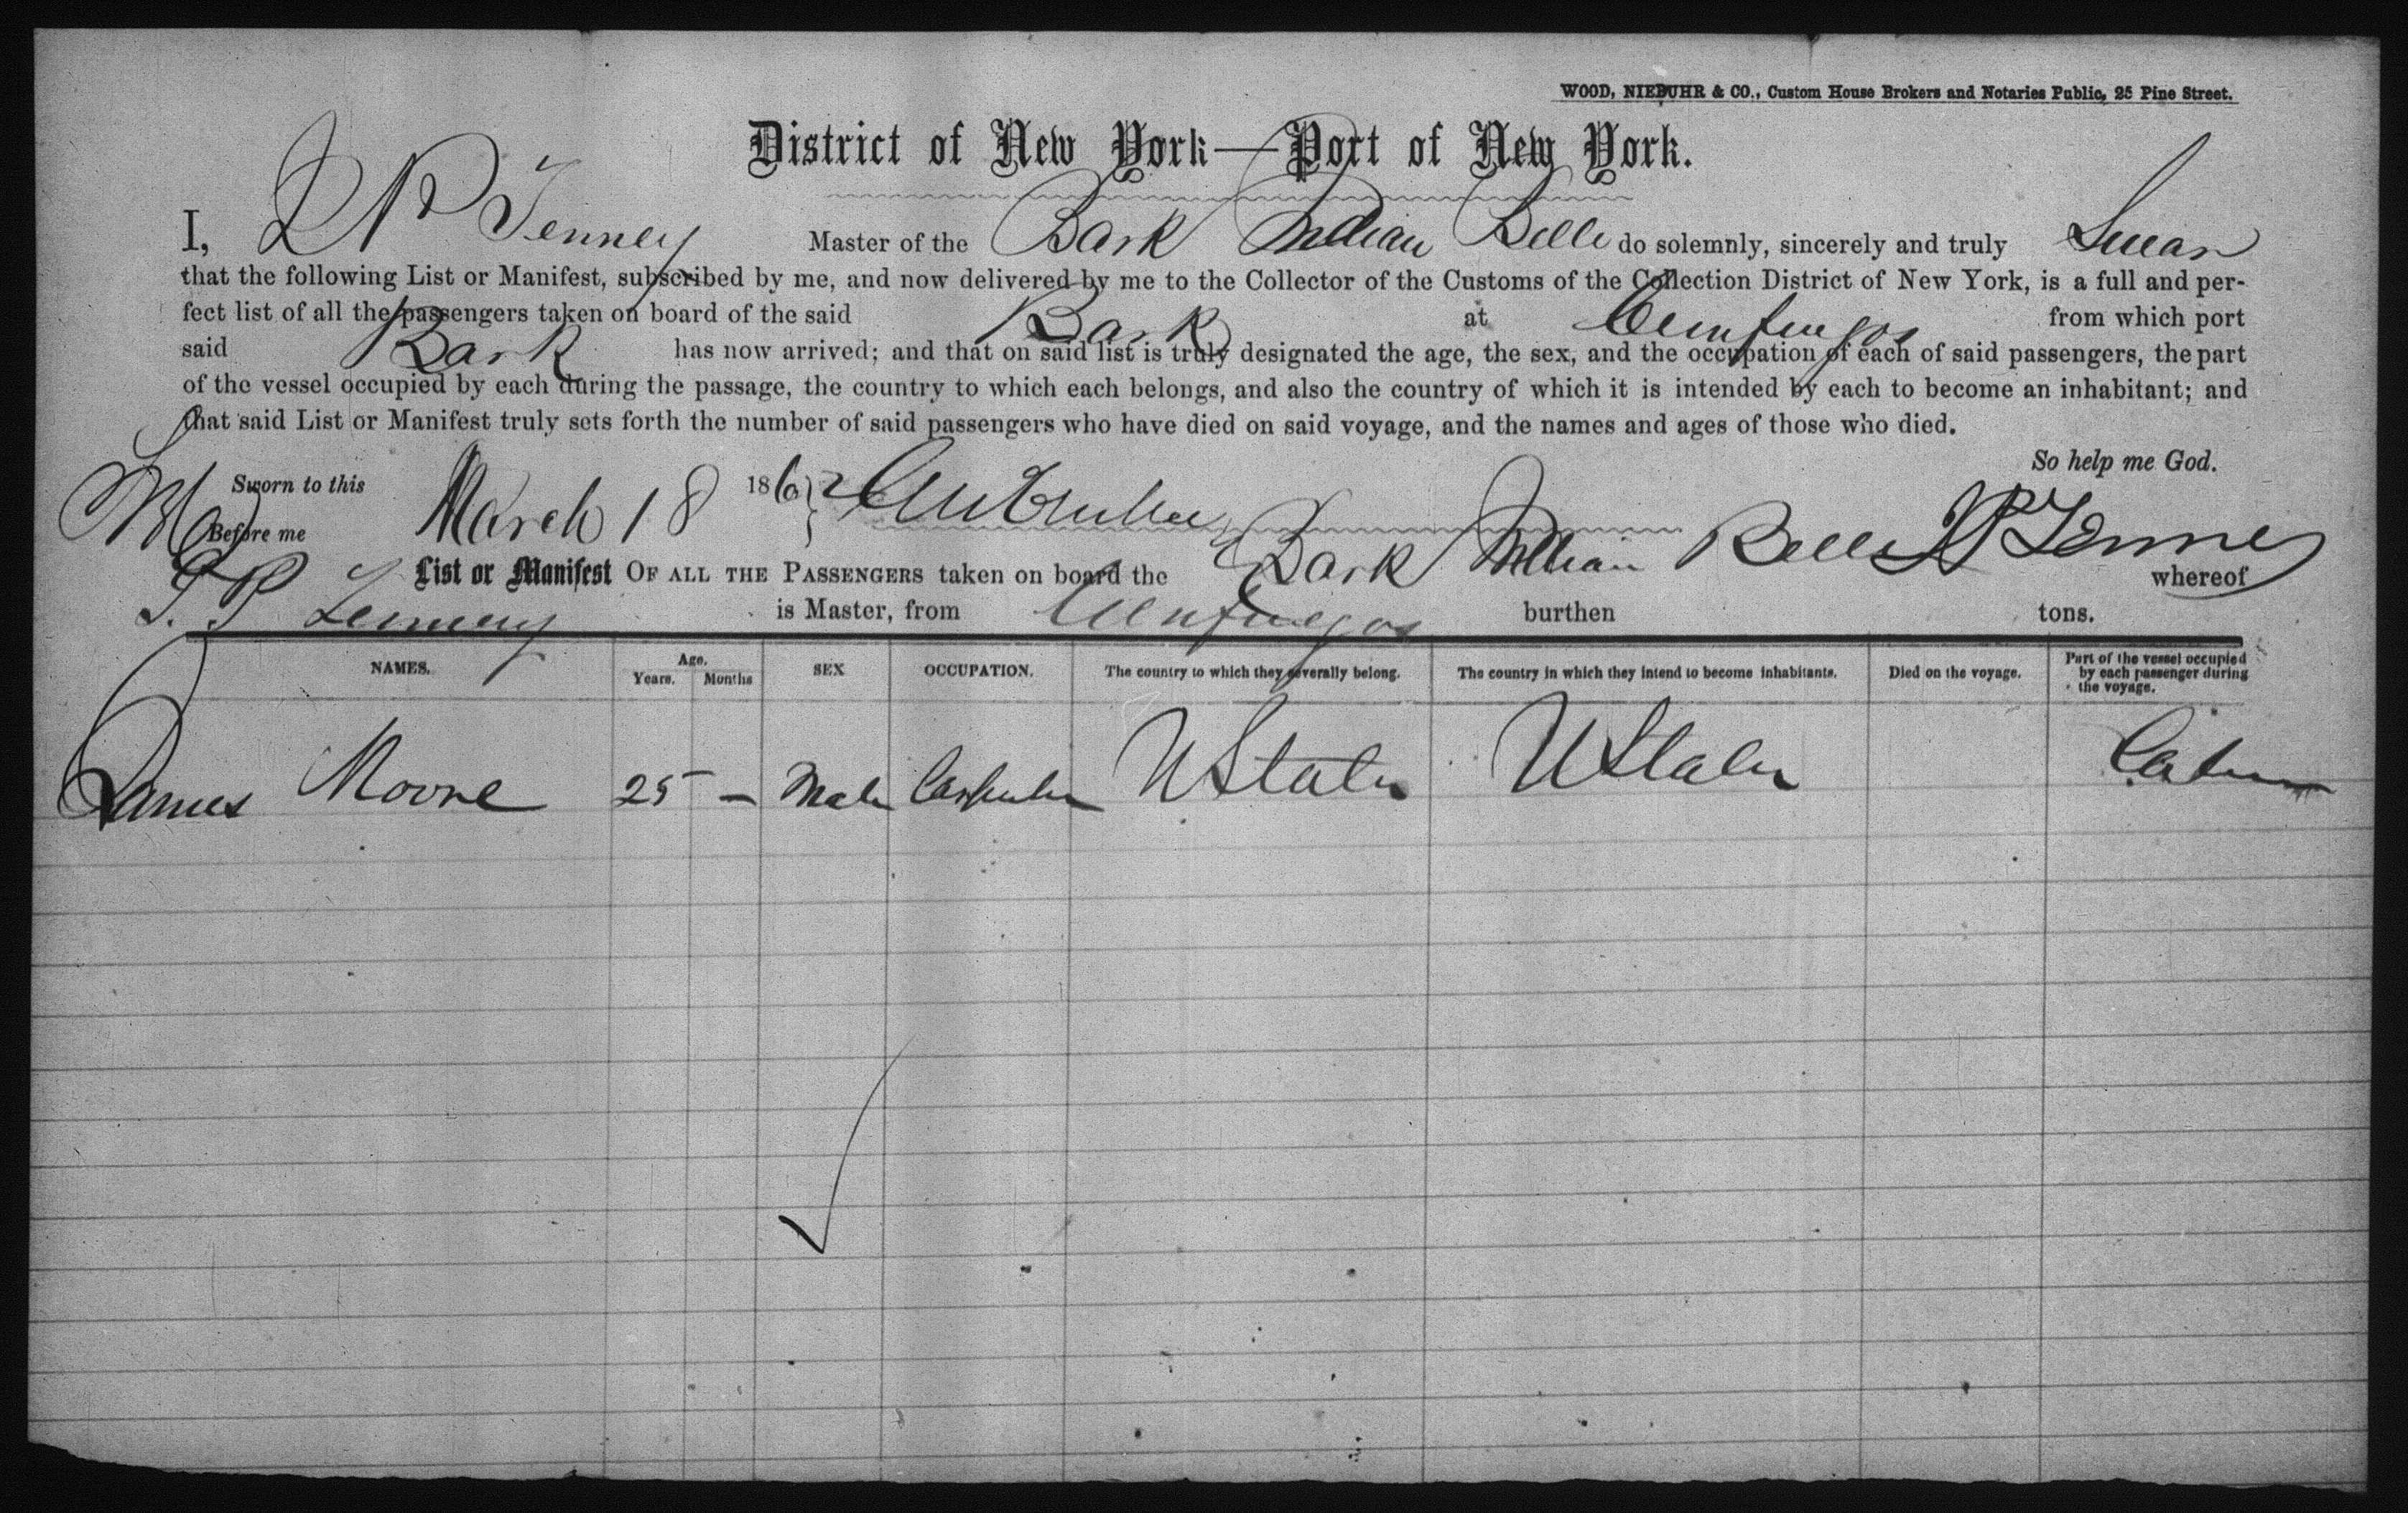 WOOD, NIEBUHR & CO., Custom House Brokers and Notaries Public, 25 Pine Street.
District of New York—Port of New York.
I, P Tenney Master of the Bark Indian Belle do solemnly, sincerely and truly Swear
that the following List or Manifest, subscribed by me, and now delivered by me to the Collector of the Customs of the Collection District of New York, is a full and per-
fect list of all the passengers taken on board of the said Bark at Cienfuegos from which port
said Bark has now arrived; and that on said list is truly designated the age, the sex, and the occupation of each of said passengers, the part
of the vessel occupied by each during the passage, the country to which each belongs, and also the country of which it is intended by each to become an inhabitant; and
that said List or Manifest truly sets forth the number of said passengers who have died on said voyage, and the names and ages of those who died.
So help me God.
Sworn to this March 18 186 P Tenney
Before me
List or Manifest OF ALL THE PASSENGERS taken on board the Bark Indian Belle whereof
P Tenney is Master, from Cienfuegos burthen tons.
NAMES. Age. Years. Months SEX OCCUPATION. The country to which they severally belong. The country in which they intend to become inhabitants. Died on the voyage. Part of the vessel occupied by each passenger during the voyage.
James Moore 25 — Male Carpenter U States U States Cabin